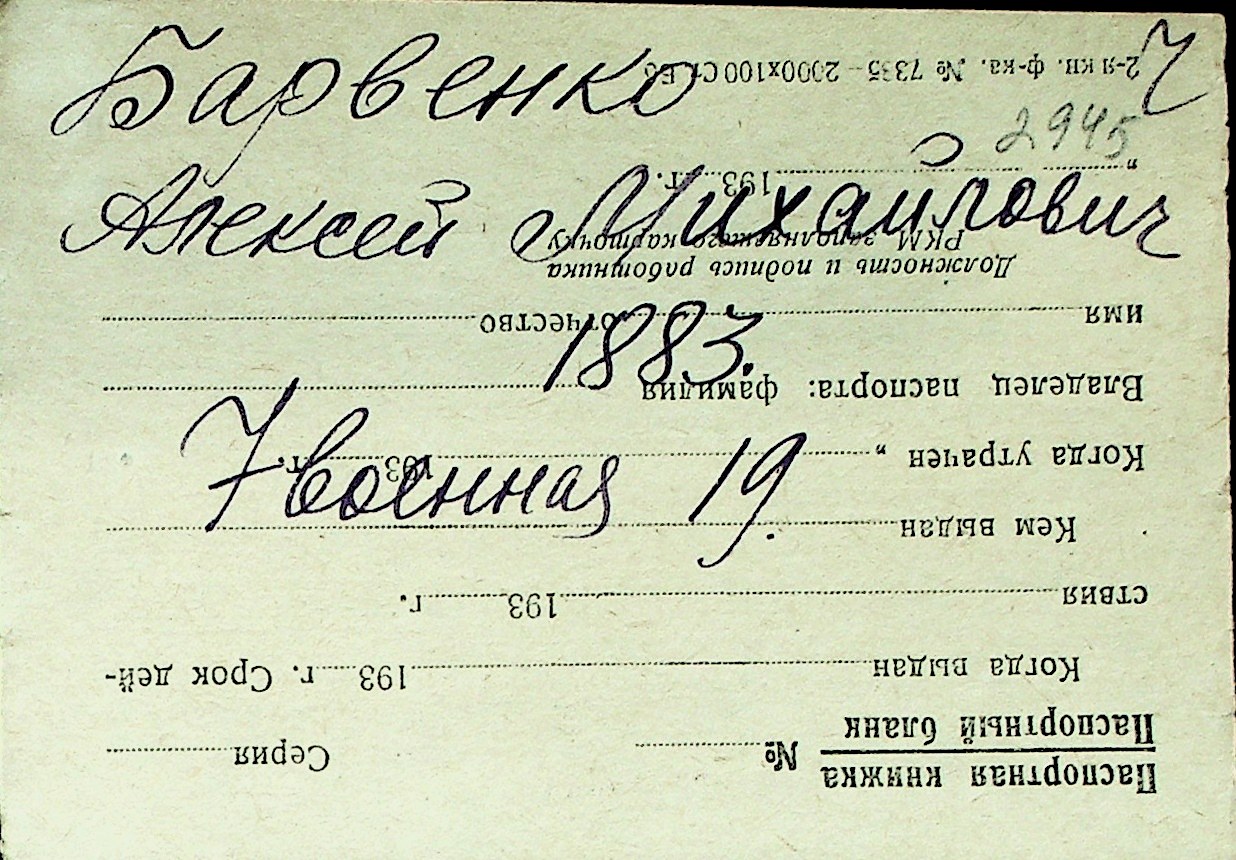 Барвенко Ч
2945
Алексей Михайлович
1883.
7 военная 19.
Паспортная книжка
Паспортный бланк
№ Серия
Когда выдан 193 г. Срок дей-
ствия 193 г.
Кем выдан
Когда утрачен „ 193 г.
Владелец паспорта: фамилия
имя отчество
Должность и подпись работника
РКМ заполнявшего карточку
„ 193 г.
2-я кн. ф-ка. № 7335 — 2000х100 Ст. Бб